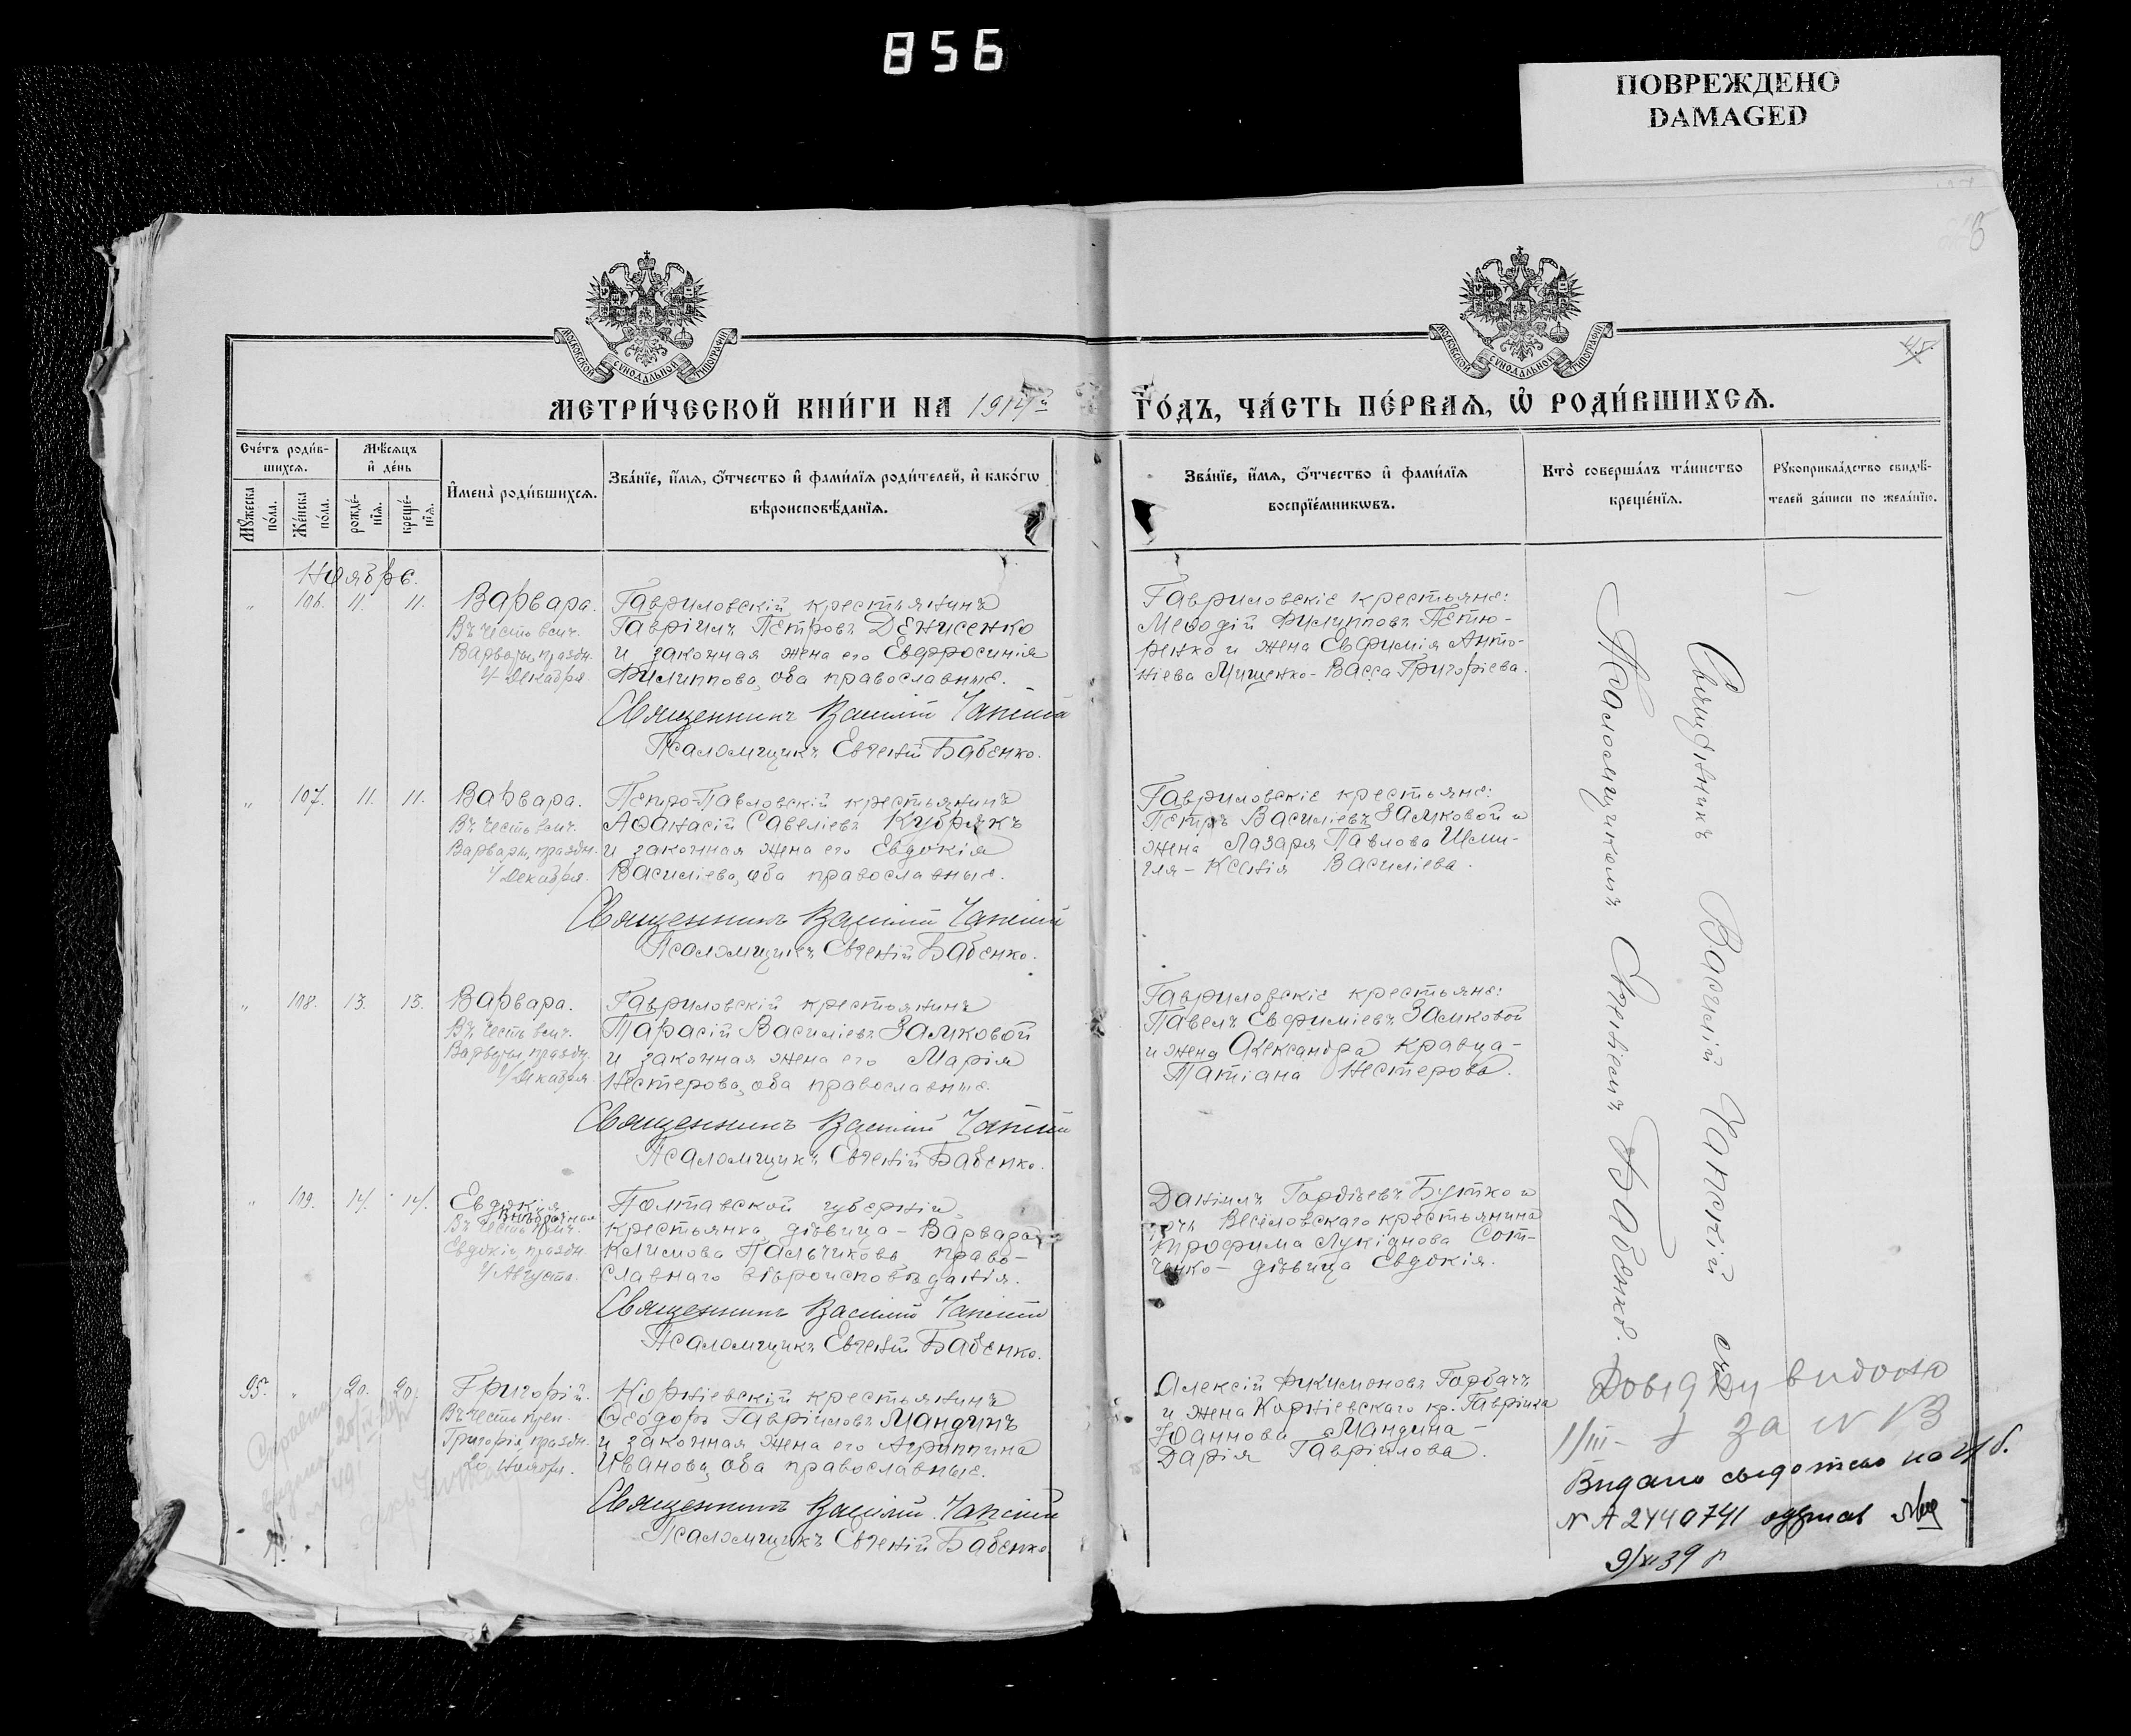 856
ПОВРЕЖДЕНО
DAMAGED
МОСКОВСКОЙ СѴНОДАЛЬНОЙ ТИПОГРАФІИ
МОСКОВСКОЙ СѴНОДАЛЬНОЙ ТИПОГРАФІИ
45.
МЕТРИ́ЧЕСКОЙ КНИ́ГИ НА 1914й ГО́ДЪ, ЧА́СТЬ ПЕ́РВАѦ, Ѡ РОДИ́ВШИХСѦ.
Сче́тъ роди́в-
шихсѧ.
Мꙋ́жеска по́ла.
Же́нска по́ла.
Мѣ́сѧцъ
и҆ де́нь
рожде́-
нїѧ.
креще́-
нїѧ.
И҆мена̀ роди́вшихсѧ.
Зва́нїе, и҆́мѧ, ѻ҆́тчество и҆ фами́лїѧ роди́телей, и҆ како́гѡ
вѣроисповѣ́данїѧ.
Зва́нїе, и҆́мѧ, ѻ҆́тчество и҆ фами́лїѧ
воспрїе́мникѡвъ.
Кто̀ соверша́лъ та́инство
креще́нїѧ.
Рꙋкоприкла́дство свидѣ́-
телей за́писи по жела́нїю.
Ноябрь.
" 106. 11. 11.
Варвара.
Въ честь велм.
Варвары, праздн.
4/ Декабря.
Гавриловскій крестьянинъ
Гавріилъ Петровъ Денисенко
и законная жена его Евфросинія
Филиппова, оба православные.
Священникъ Василій Чапскій
Псаломщикъ Евгеній Бабенко.
Гавриловскіе крестьяне:
Меѳодій Филипповъ Петю-
ренко и жена Евфимія Анто-
ніева Мищенко - Васса Григоріева.
" 107. 11. 11.
Варвара.
Въ честь велм.
Варвары, праздн.
4/ Декабря.
Петро-Павловскій крестьянинъ
Аѳанасій Савеліевъ Кубракъ
и законная жена его Евдокія
Василіева, оба православные.
Священникъ Василій Чапскій
Псаломщикъ Евгеній Бабенко.
Гавриловскіе крестьяне:
Петръ Василіевъ Замковой и
жена Лазаря Павлова Шми-
гля - Ксенія Василіева.
" 108. 13. 13.
Варвара.
Въ честь велм.
Варвары, праздн.
4/ Декабря.
Гавриловскій крестьянинъ
Тарасій Василіевъ Замковой
и законная жена его Марія
Нестерова, оба православные.
Священникъ Василій Чапскій
Псаломщикъ Евгеній Бабенко.
Гавриловскіе крестьяне:
Павелъ Евфиміевъ Замковой
и жена Александра Кравца -
Татіана Нестерова.
" 109. 14. 14.
Евдокія
внѣбрачная
Въ честь прм.
Евдокіи, праздн.
4/ Августа.
Полтавской губерніи,
крестьянка дѣвица - Варвара
Климова Пальчикова право-
славнаго вѣроисповѣданія.
Священникъ Василій Чапскій
Псаломщикъ Евгеній Бабенко.
Даніилъ Гордѣевъ Бутко и
дочь Веселовскаго крестьянина
Трофима Лукіанова Сот-
ченко - дѣвица Евдокія.
95. " 20. 20.
Григорій.
Въ честь преп.
Григорія, праздн.
20 Ноября.
Корніевскій крестьянинъ
Ѳеодоръ Гавріиловъ Мандчинъ
и законная жена его Агриппина
Иванова, оба православные.
Священникъ Василій Чапскій
Псаломщикъ Евгеній Бабенко
Алексій Филимоновъ Горбачъ
и жена Корніевскаго кр. Гавріила
Іоаннова Мандчина -
Дарія Гавріилова.
Священникъ Василій Чапскій съ
Псаломщикомъ Евгеніемъ Бабенко.
Справка
видана
Довідку видано
1/III - за N 13
Видано свідотство на
N А 2440741
9/XI 39 р